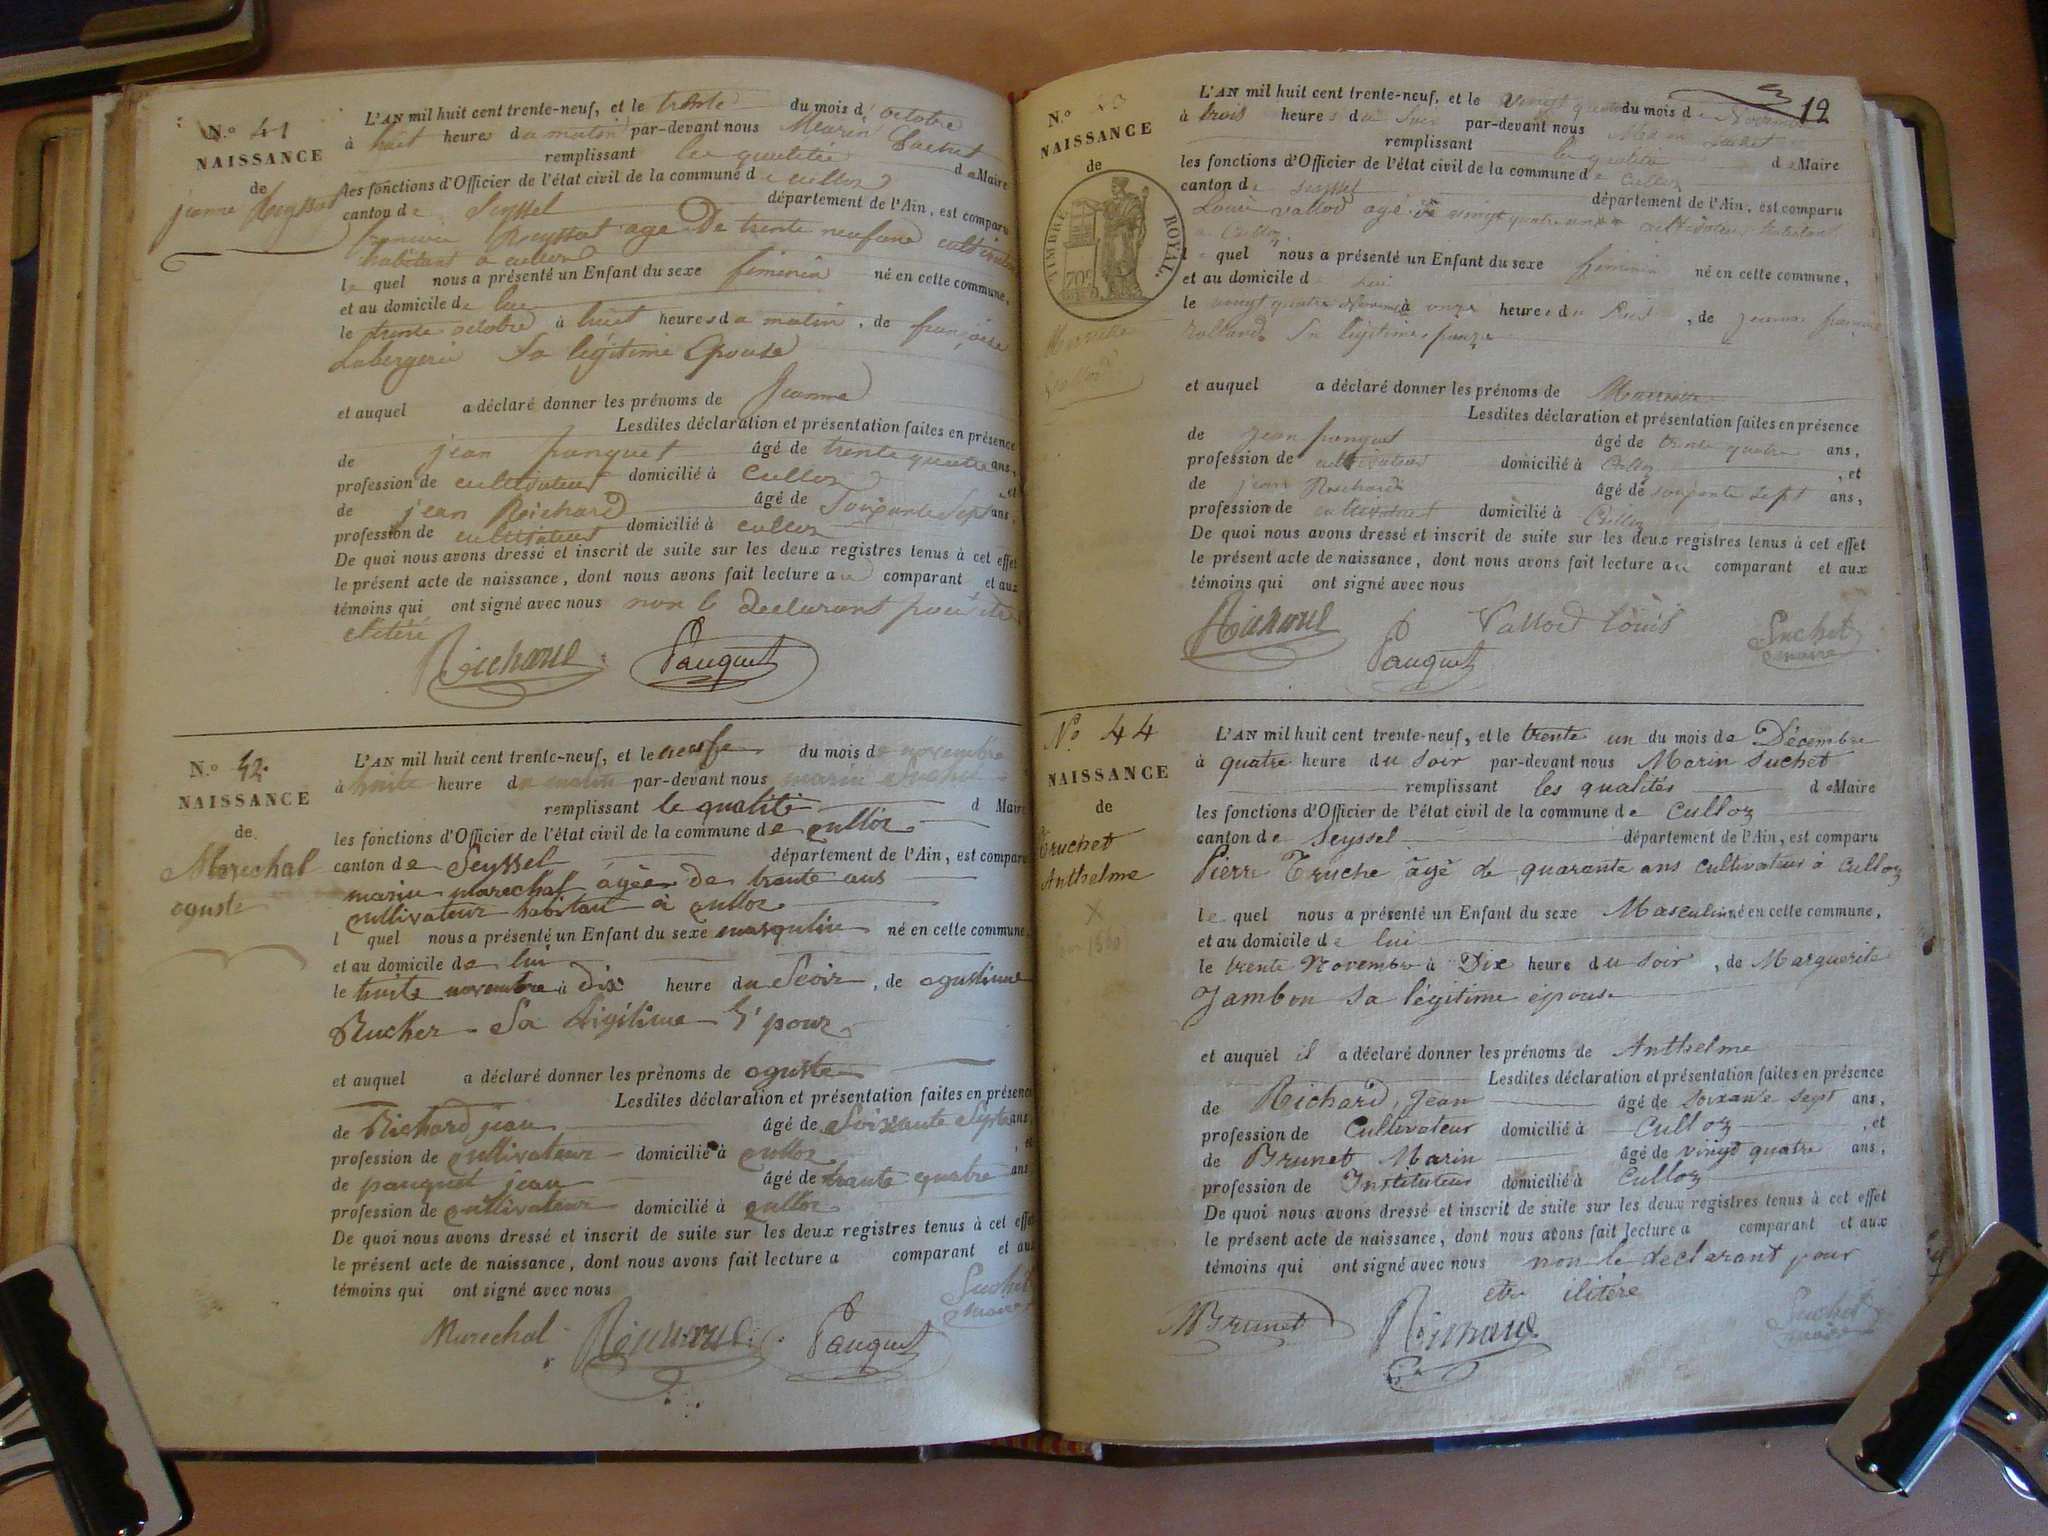 N.o 41
NAISSANCE
de
jeanne Reyssat
L'AN mil huit cent trente-neuf, et le trente du mois d'octobre
à huit heures du matin par-devant nous Marin Suchet
remplissant les qualitée de Maire
les fonctions d'Officier de l'état civil de la commune de culloz
canton de Seyssel département de l'Ain, est comparu
Reyssat age De trente neuf ans cultivateur
habitant a culloz
le quel nous a présenté un Enfant du sexe féminin né en cette commune,
et au domicile de lui
le trente octobre à huit heures du matin, de françoise
Labergerie Sa légitime Epouse
et auquel a déclaré donner les prénoms de Jeanne
Lesdites déclaration et présentation faites en présence
de jean panquet âgé de trente quatre ans,
profession de cultivateur domicilié à Culloz, et
de jean Richard âgé de Soixante Sept ans,
profession de cultivateur domicilié à culloz
De quoi nous avons dressé et inscrit de suite sur les deux registres tenus à cet effet
le présent acte de naissance, dont nous avons fait lecture au comparant et aux
témoins qui ont signé avec nous non le declarant pour etre
Richard Pauquet
N.o 42.
NAISSANCE
de
Marechal
oguste
L'AN mil huit cent trente-neuf, et le neufe du mois de novembre
à huite heure du matin par-devant nous marin Suchet
remplissant le qualité d Maire
les fonctions d'Officier de l'état civil de la commune de culloz
canton de Seyssel département de l'Ain, est comparu
marin marechal âgée De trente ans
cultivateur habitant à culloz
l quel nous a présenté un Enfant du sexe masqulin né en cette commune,
et au domicile de lui
le huite novembre à Dix heure du Seoir, de ogustinne
Rucher Sa légitime E'pouz
et auquel a déclaré donner les prénoms de oguste
Lesdites déclaration et présentation faites en présence
de Richard jean âgé de Soixante Septe ans,
profession de cultivateur domicilié à culloz, et
de pauquet jean âgé de trante quatre ans
profession de cultivateur domicilié à culloz
De quoi nous avons dressé et inscrit de suite sur les deux registres tenus à cet effet
le présent acte de naissance, dont nous avons fait lecture a comparant et aux
témoins qui ont signé avec nous
Suchet
maire
Marechal Richard Pauquet
12
N.o
NAISSANCE
de
TIMBRE ROYAL.
70c
L'AN mil huit cent trente-neuf, et le vingt quatre du mois de Novembre
à trois heures du Soir par-devant nous Marin Suchet
remplissant les qualité de Maire
les fonctions d'Officier de l'état civil de la commune de Culloz
canton de Seyssel département de l'Ain, est comparu
Louis vallod agé de vingt quatre ans cultivateur habitant
a Culloz
le quel nous a présenté un Enfant du sexe féminin né en cette commune,
et au domicile de lui
le vingt quatre Novembre à onze heures du, de jeanne
Rolland Sa légitime
et auquel a déclaré donner les prénoms de
Lesdites déclaration et présentation faites en présence
de jean panquet âgé de trente quatre ans,
profession de cultivateur domicilié à Culloz, et
de jean Richard âgé de soixante sept ans,
profession de cultivateur domicilié à Culloz
De quoi nous avons dressé et inscrit de suite sur les deux registres tenus à cet effet
le présent acte de naissance, dont nous avons fait lecture au comparant et aux
témoins qui ont signé avec nous
Richard Pauquet Vallod Louis Suchet
maire
No. 44
NAISSANCE
de
Truchet
Anthelme
X
L'AN mil huit cent trente-neuf, et le trente un du mois de Décembre
à quatre heure du soir par-devant nous Marin Suchet
remplissant les qualités de Maire
les fonctions d'Officier de l'état civil de la commune de Culloz
canton de Seyssel département de l'Ain, est comparu
Pierre Truche âgé de quarante ans cultivateur à Culloz
le quel nous a présenté un Enfant du sexe Masculin né en cette commune,
et au domicile de lui
le trente Novembre à Dix heure du soir, de Marguerite
Jambon sa légitime épouse
et auquel il a déclaré donner les prénoms de Anthelme
Lesdites déclaration et présentation faites en présence
de Richard, Jean âgé de soixante sept ans,
profession de Cultivateur domicilié à Culloz, et
de Brunet Marin âgé de vingt quatre ans,
profession de Instituteur domicilié à Culloz
De quoi nous avons dressé et inscrit de suite sur les deux registres tenus à cet effet
le présent acte de naissance, dont nous avons fait lecture a comparant et aux
témoins qui ont signé avec nous non le declarant pour
etre ilitére
MBrunet Richard Suchet
maire